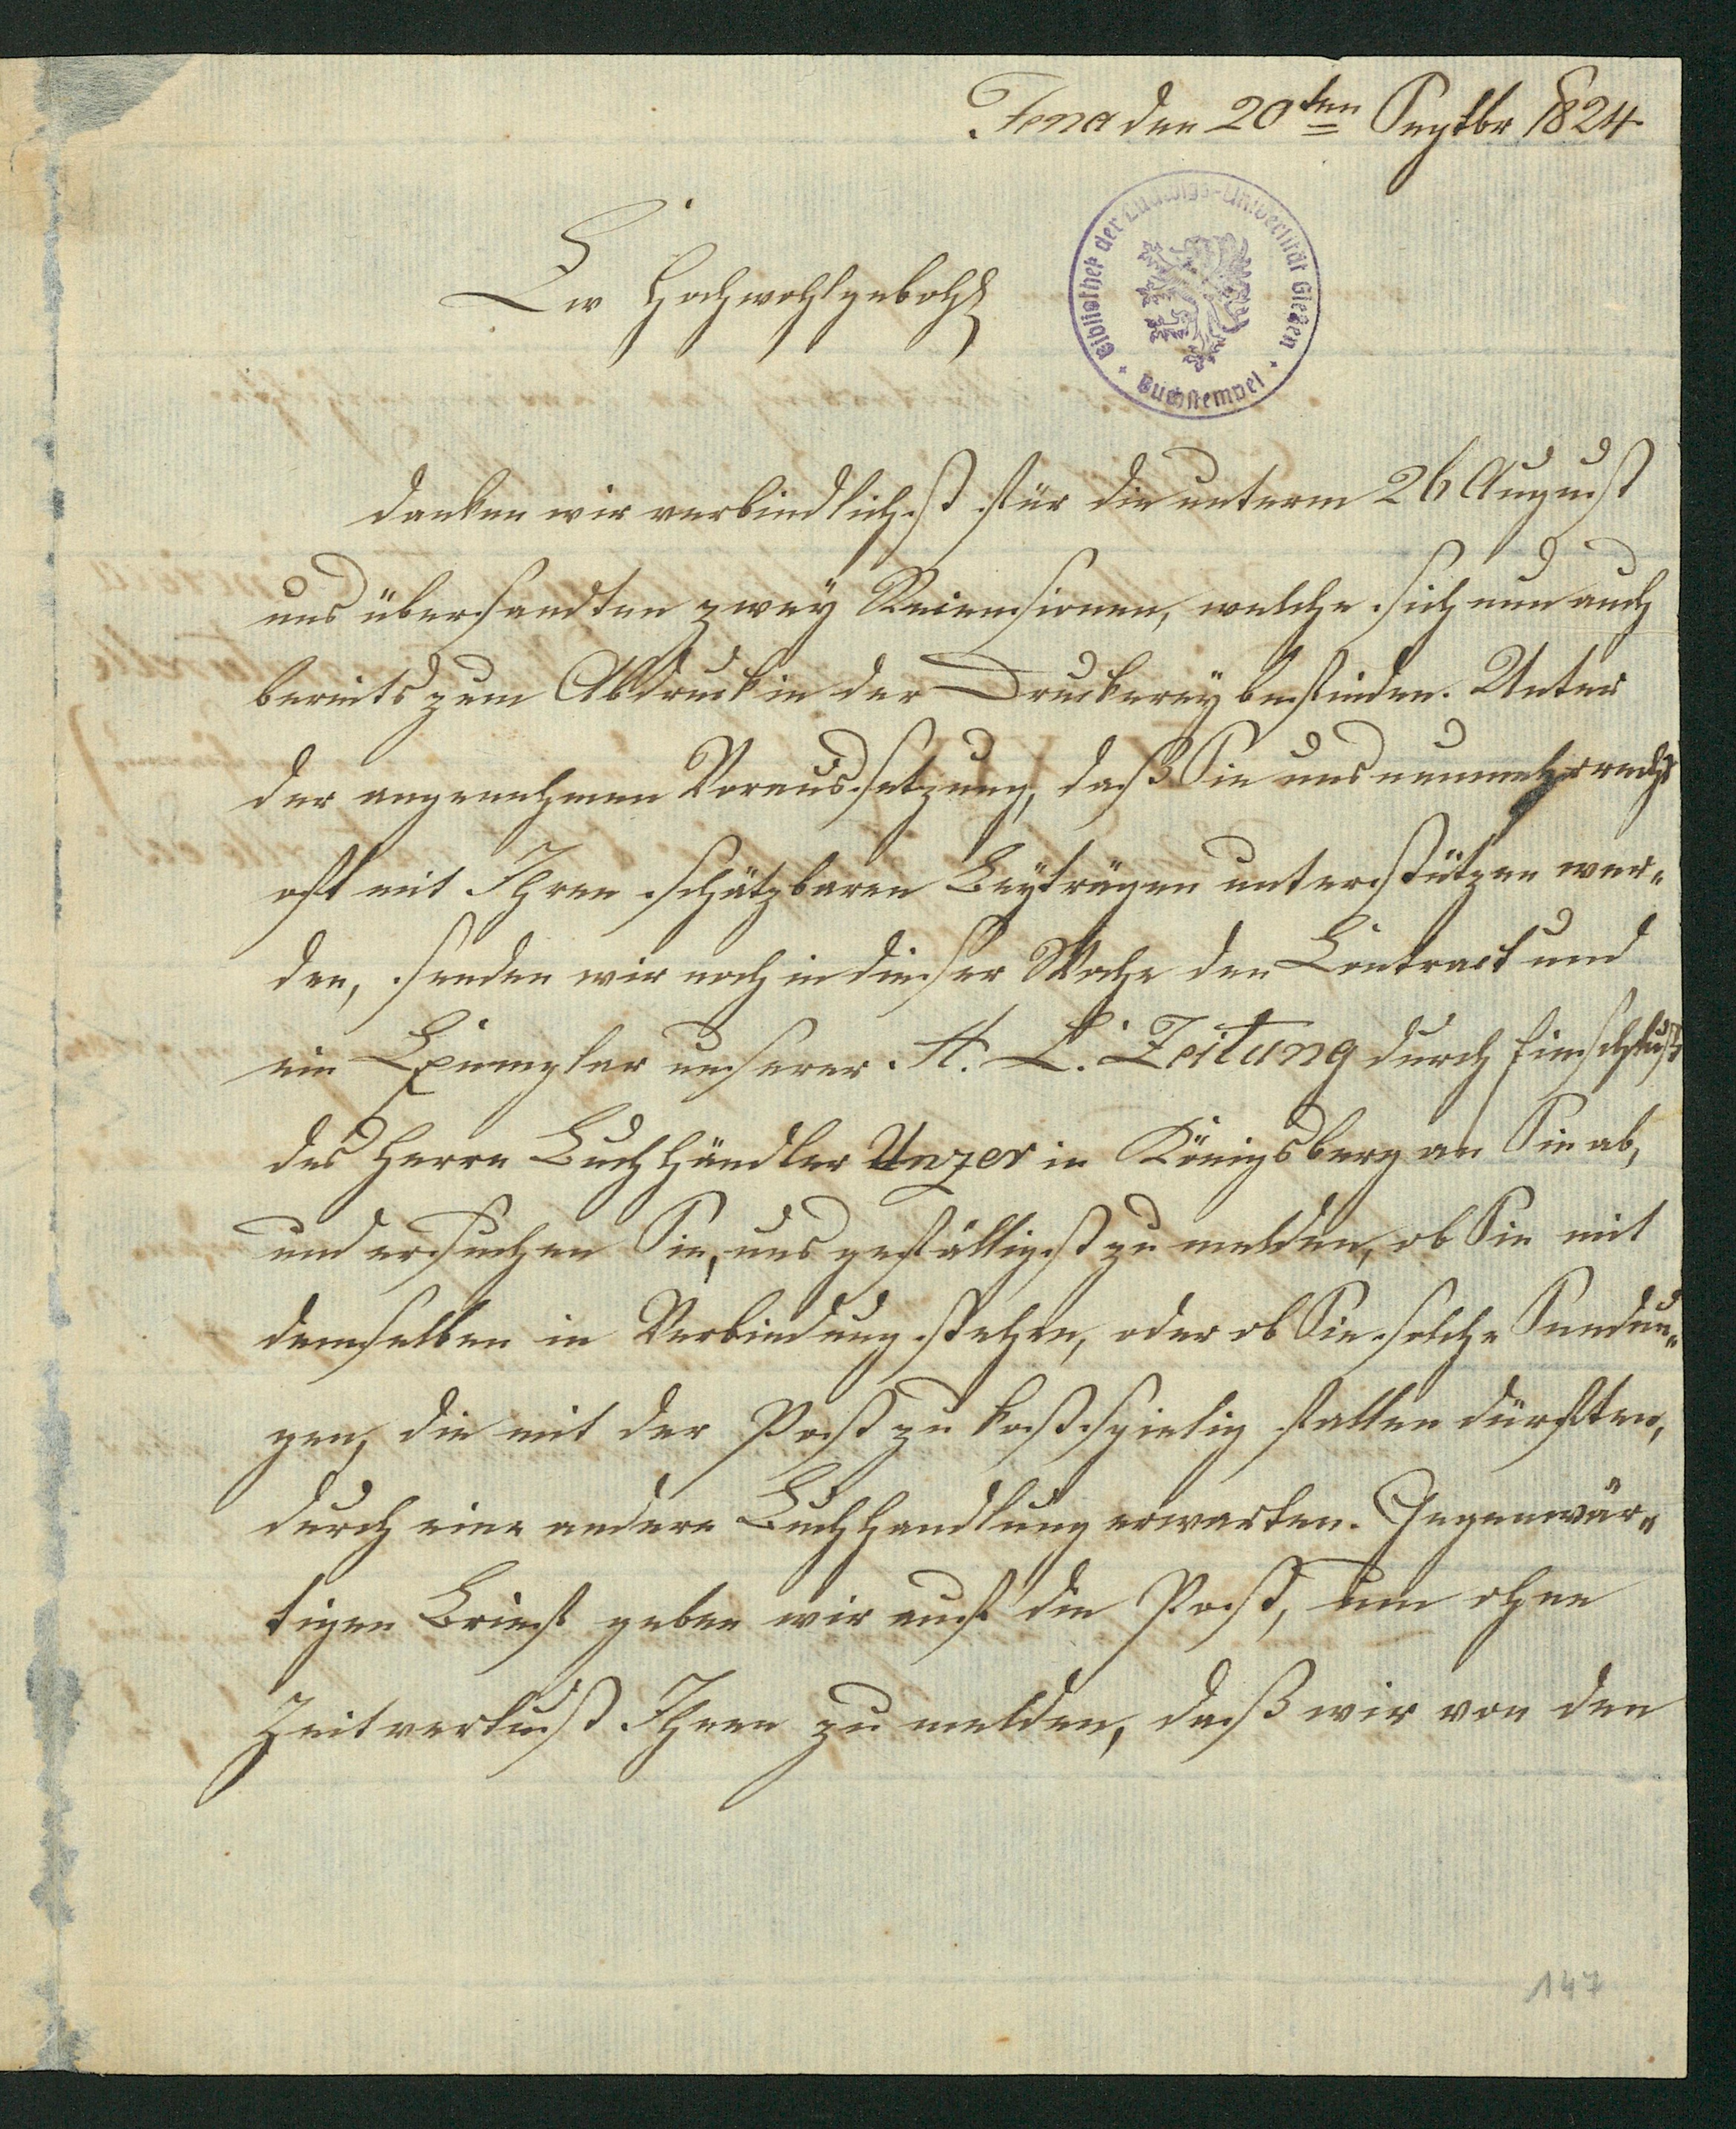 Jena den 20ten Septbr 1824
Bibliothek der Ludwigs-Universität Gießen
Buchstempel
Ew Hochwohlgebohr
danken wir verbindlichst für die unterm 26 August
uns übersandten zwey Recensionen, welche sich nun auch
bereits zum Abdruck in der Druckerey befinden. Unter
der angenehmen Voraussetzung, daß Sie uns nunmehr recht
oft mit Ihren schätzbaren Beyträgen unterstützen wer-
den, senden wir noch in dieser Woche den Contract und
ein Exemplar unserer A. L. Zeitung durch Einschluß
des Herrn Buchhändler Unzer in Königsberg an Sie ab,
und ersuchen Sie, uns gefälligst zu melden, ob Sie mit
demselben in Verbindung stehen, oder ob Sie solche Sendun-
gen, die mit der Post zu kostspielig fallen dürften,
durch eine andere Buchhandlung erwarten. Gegenwär-
tigen Brief geben wir auf die Post, um ohne
Zeitverlust Ihnen zu melden, daß wir von den
147